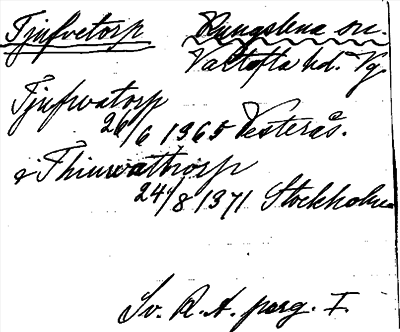 Tjufvetorp Kungslena sn.
Valtofta hd. Vg.
Tjufwatorp
26/6 1365 Västerås.
i Thiuwathorp
24/8 1371 Stockholm
Sv. R. A. perg. I.